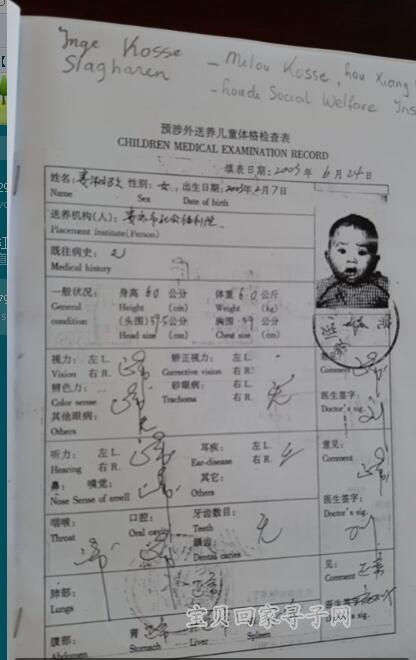 Inge Kosse - Milou Kosse, hou Xiang
Slagharen - houdu Social Welfare Ins
预涉外送养儿童体格检查表
CHILDREN MEDICAL EXAMINATION RECORD
填表日期:2003年 6月24日
姓名: 性别:女 出生日期:2003年2月7日
Name Sex Date of birth
送养机构(人): 市社会福利院
Placement institute(Person)
既往病史:
Medical history
一般状况: 身高 60 公分 体重 6.0 公斤
General Height (cm) Weight (kg)
condition (头围)39.5公分 胸围:39 公分
Head size (cm) Chest size (cm)
视力:左L. 正常 矫正视力:左L. Comment 正常
Vision 右R. Corrective vision 右R.
辨色力: 正常 砂眼病:左L. 无 医生签字:
Color sense Trachoma 右R. Doctor's sig.
其他眼病: 无
Others
听力: 左L. 正常 耳疾: 左L. 意见:
Hearing 右R. Ear-disease 右R. Comment 正常
鼻: 嗅觉: 正常 其它:
Nose Sense of smell Others 医生签字:
咽喉: 口腔: 牙齿数目: 无 Doctor's sig.
Throat 正常 Oral cavity 正常 Teeth
龋齿:
Dental caries
肺部: 正常 见:
Lungs Comment 正常
医生签字:
宝贝回家寻子网
腹部: 胃 正常 肝 脾
Abdomen Stomach Liver Spleen